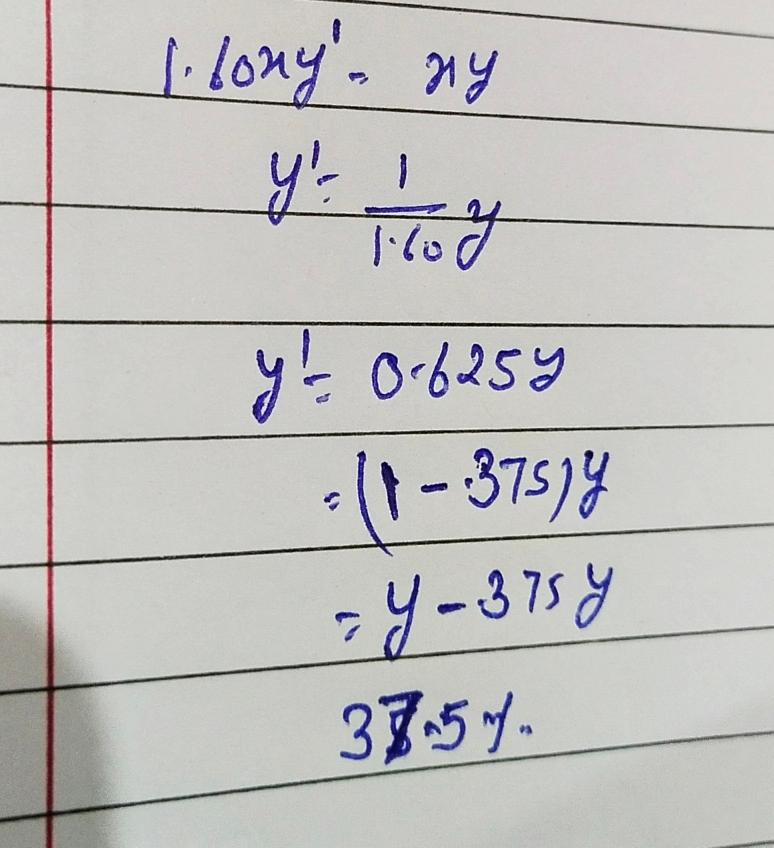 1.60xy' = xy
y' = 1/1.60 y
y' = 0.625y
= (1 - .375)y
= y - .375y
37.5%.